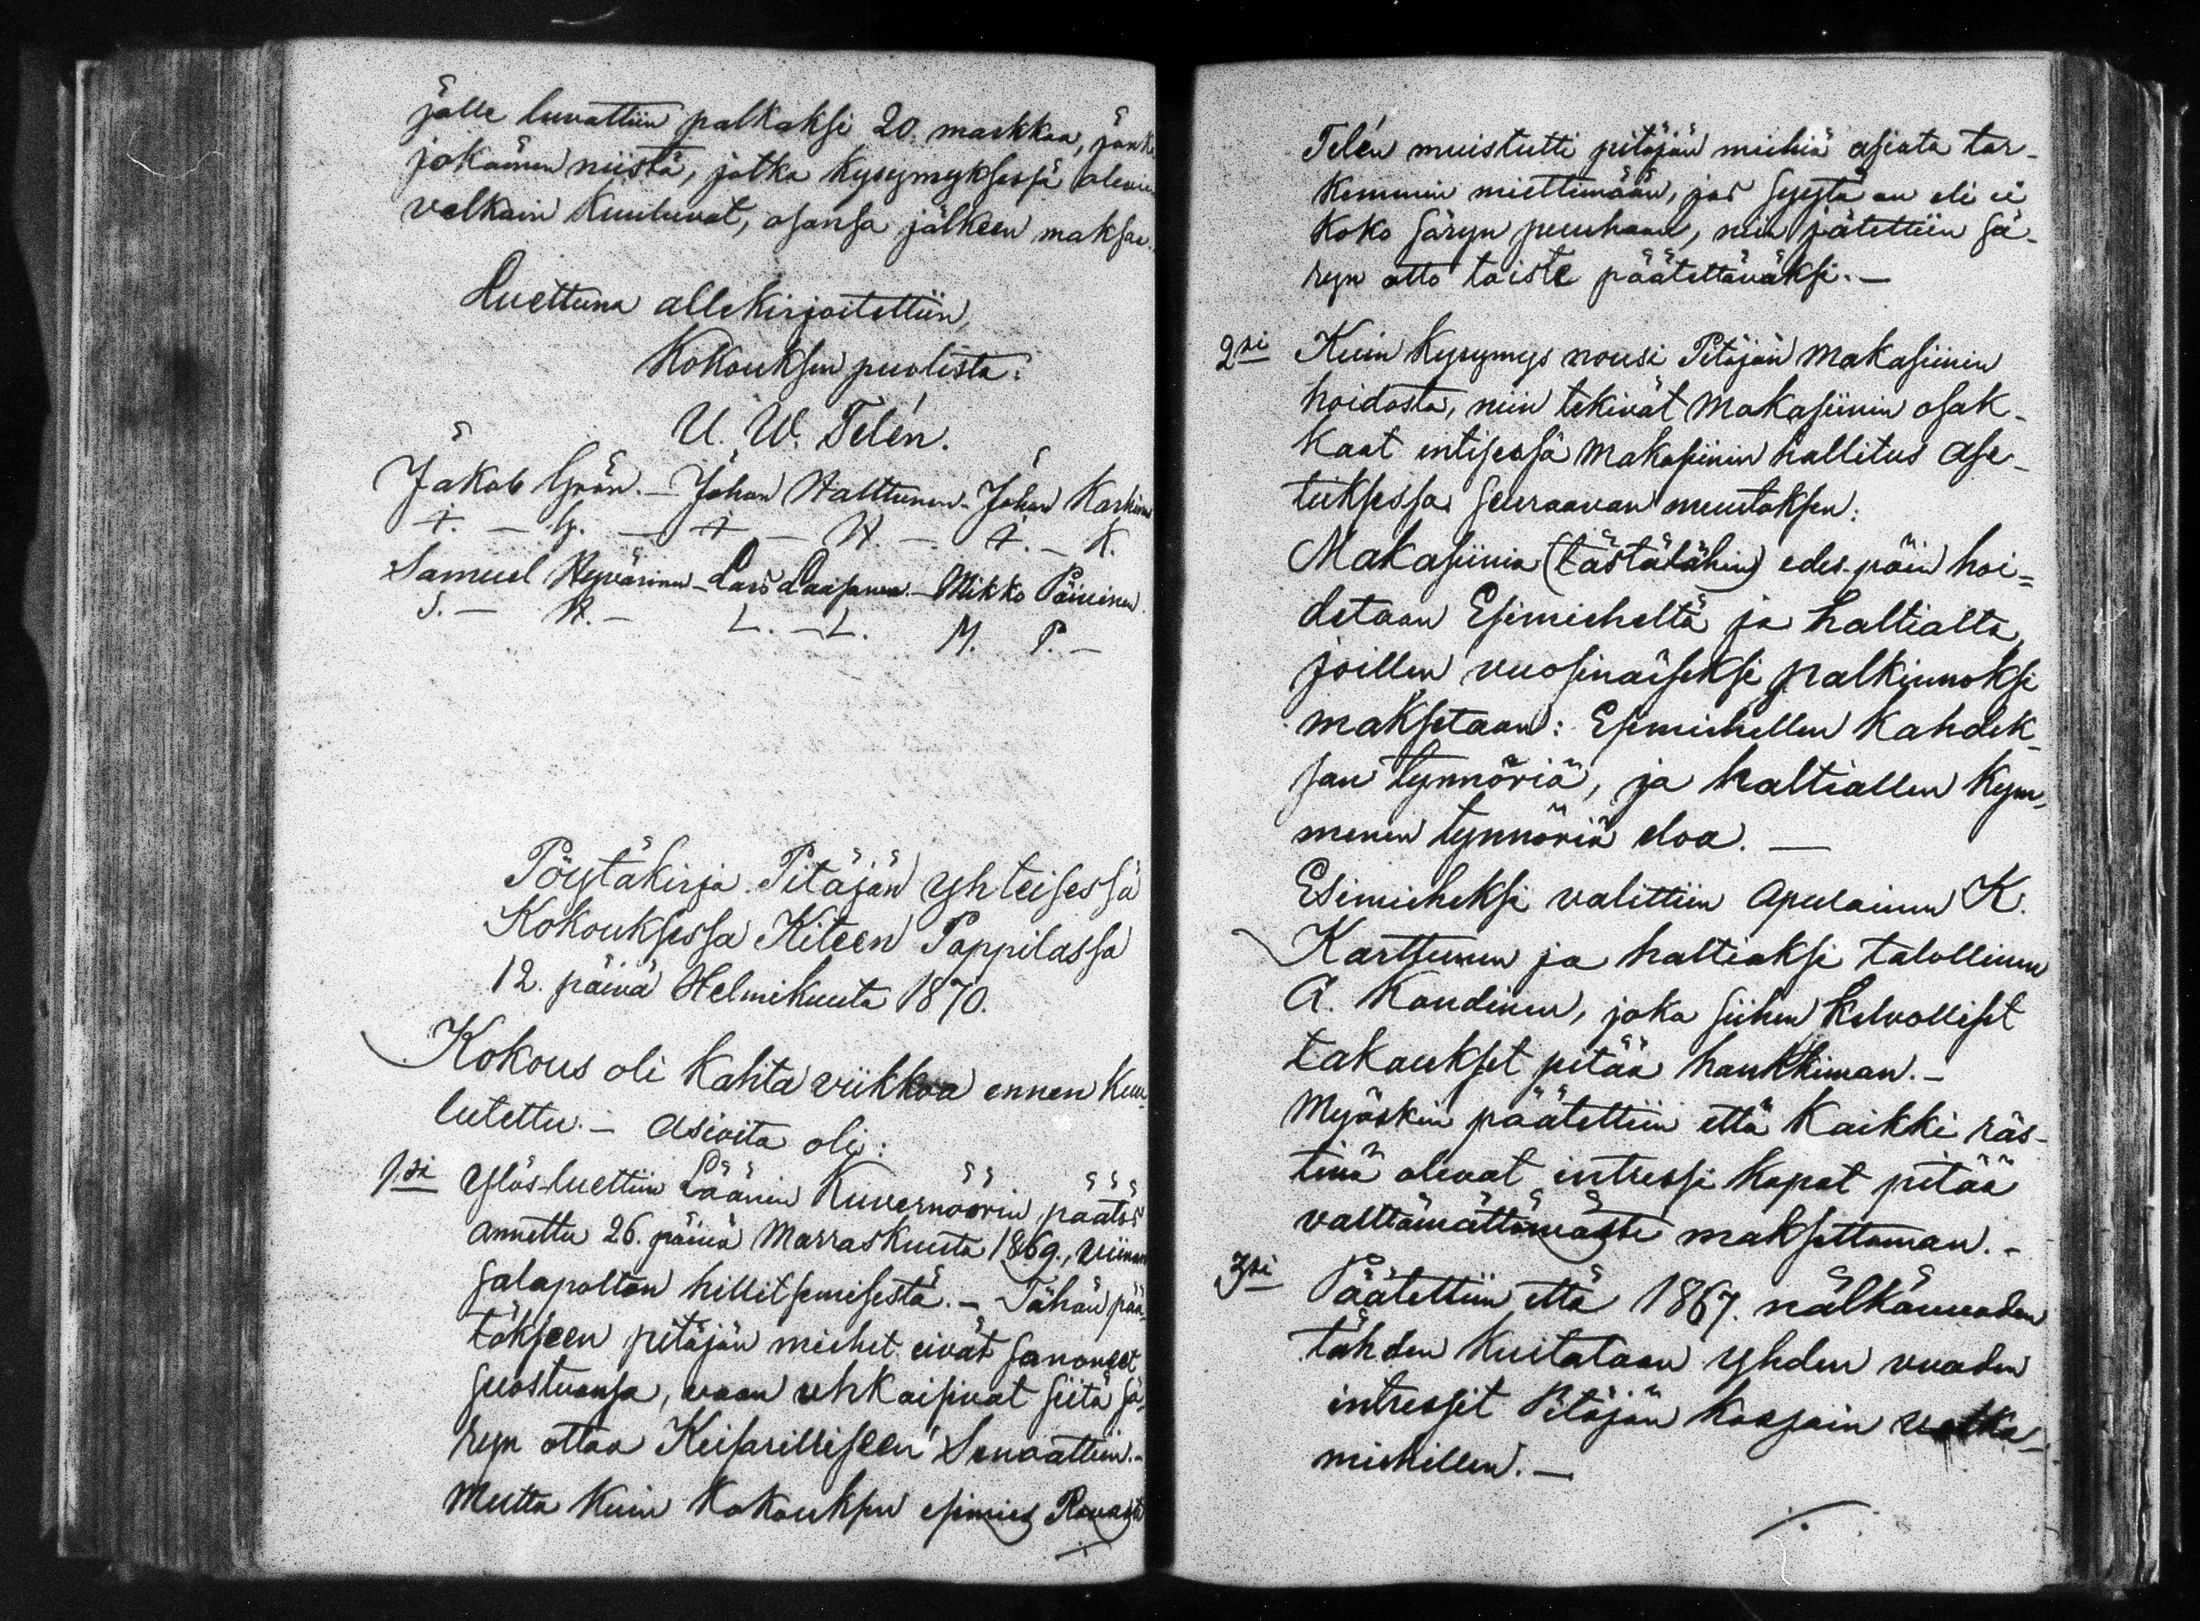 jolle luvattiin palkaksi 20. markkaa, jonka
jokainen niistä, jotka kysymyksessä olevien
velkain kuuluvat, osansa jälkeen maksaa.
Luettuna allekirjoitettiin,
Kokouksen puolista:
U. W. Telén.
Jakob Grön. - Johan Halttunen - Johan Karhinen
J. - G. - J. - H. - J. - K.
Samuel Hyvärinen - Lars Laasanen - Mikko Päivinen
S. - H. - L. - L. M. P. -
Pöytäkirja Pitäjän yhteisessä
Kokouksessa Kiteen Pappilassa
12. päivä Helmikuuta 1870.
Kokous oli kahta viikkoa ennen kuu-
lutettu. - Asioita oli:
1.si Ylös-luettiin Läänin Kuvernöörin päätös
annettu 26. päivä Marraskuuta 1869., viinan
salapolton hillitsemisestä. - Tähän pää-
tökseen pitäjän miehet eivät sanoneet
suostuansa, vaan uhkaisivat siitä sä-
ryn ottaa Keisarilliseen Senaattiin. -
Mutta kuin kokouksen esimies Rovasti
Telén muistutti pitäjän miehiä asiata tar-
kemmin miettimään, jos syystä on eli ei
koko säryn puuhaan, niin jätettiin sä-
ryn otto toiste päätettäväksi. -
2si Kuin kysymys nousi Pitäjän makasiinin
hoidosta, niin tekivät makasiinin osak-
kaat entisessä makasiinin hallitus ase-
tuksessa seuraavan muutoksen:
Makasiinia (tästälähin) edes-päin hoi=
detaan Esimieheltä ja haltialta,
joillen vuosinaiseksi palkinnoksi
maksetaan: Esimiehellen kahdek-
san tynnöriä, ja haltiallen kym-
menen tynnöriä eloa. -
Esimieheksi valittiin Apulainen K.
Karttunen ja haltiaksi talollinen
A. Kondinen, joka siihen kelvolliset
takaukset pitää hankkiman. -
Myöskin päätettiin että kaikki räs-
tinä olevat intressi kapat pitää
välttämättömästi maksettaman. -
3si Päätettiin että 1867. nälkävuoden
tähden kuitataan yhden vuoden
intressit Pitäjän kassain velka-
miehillen. -